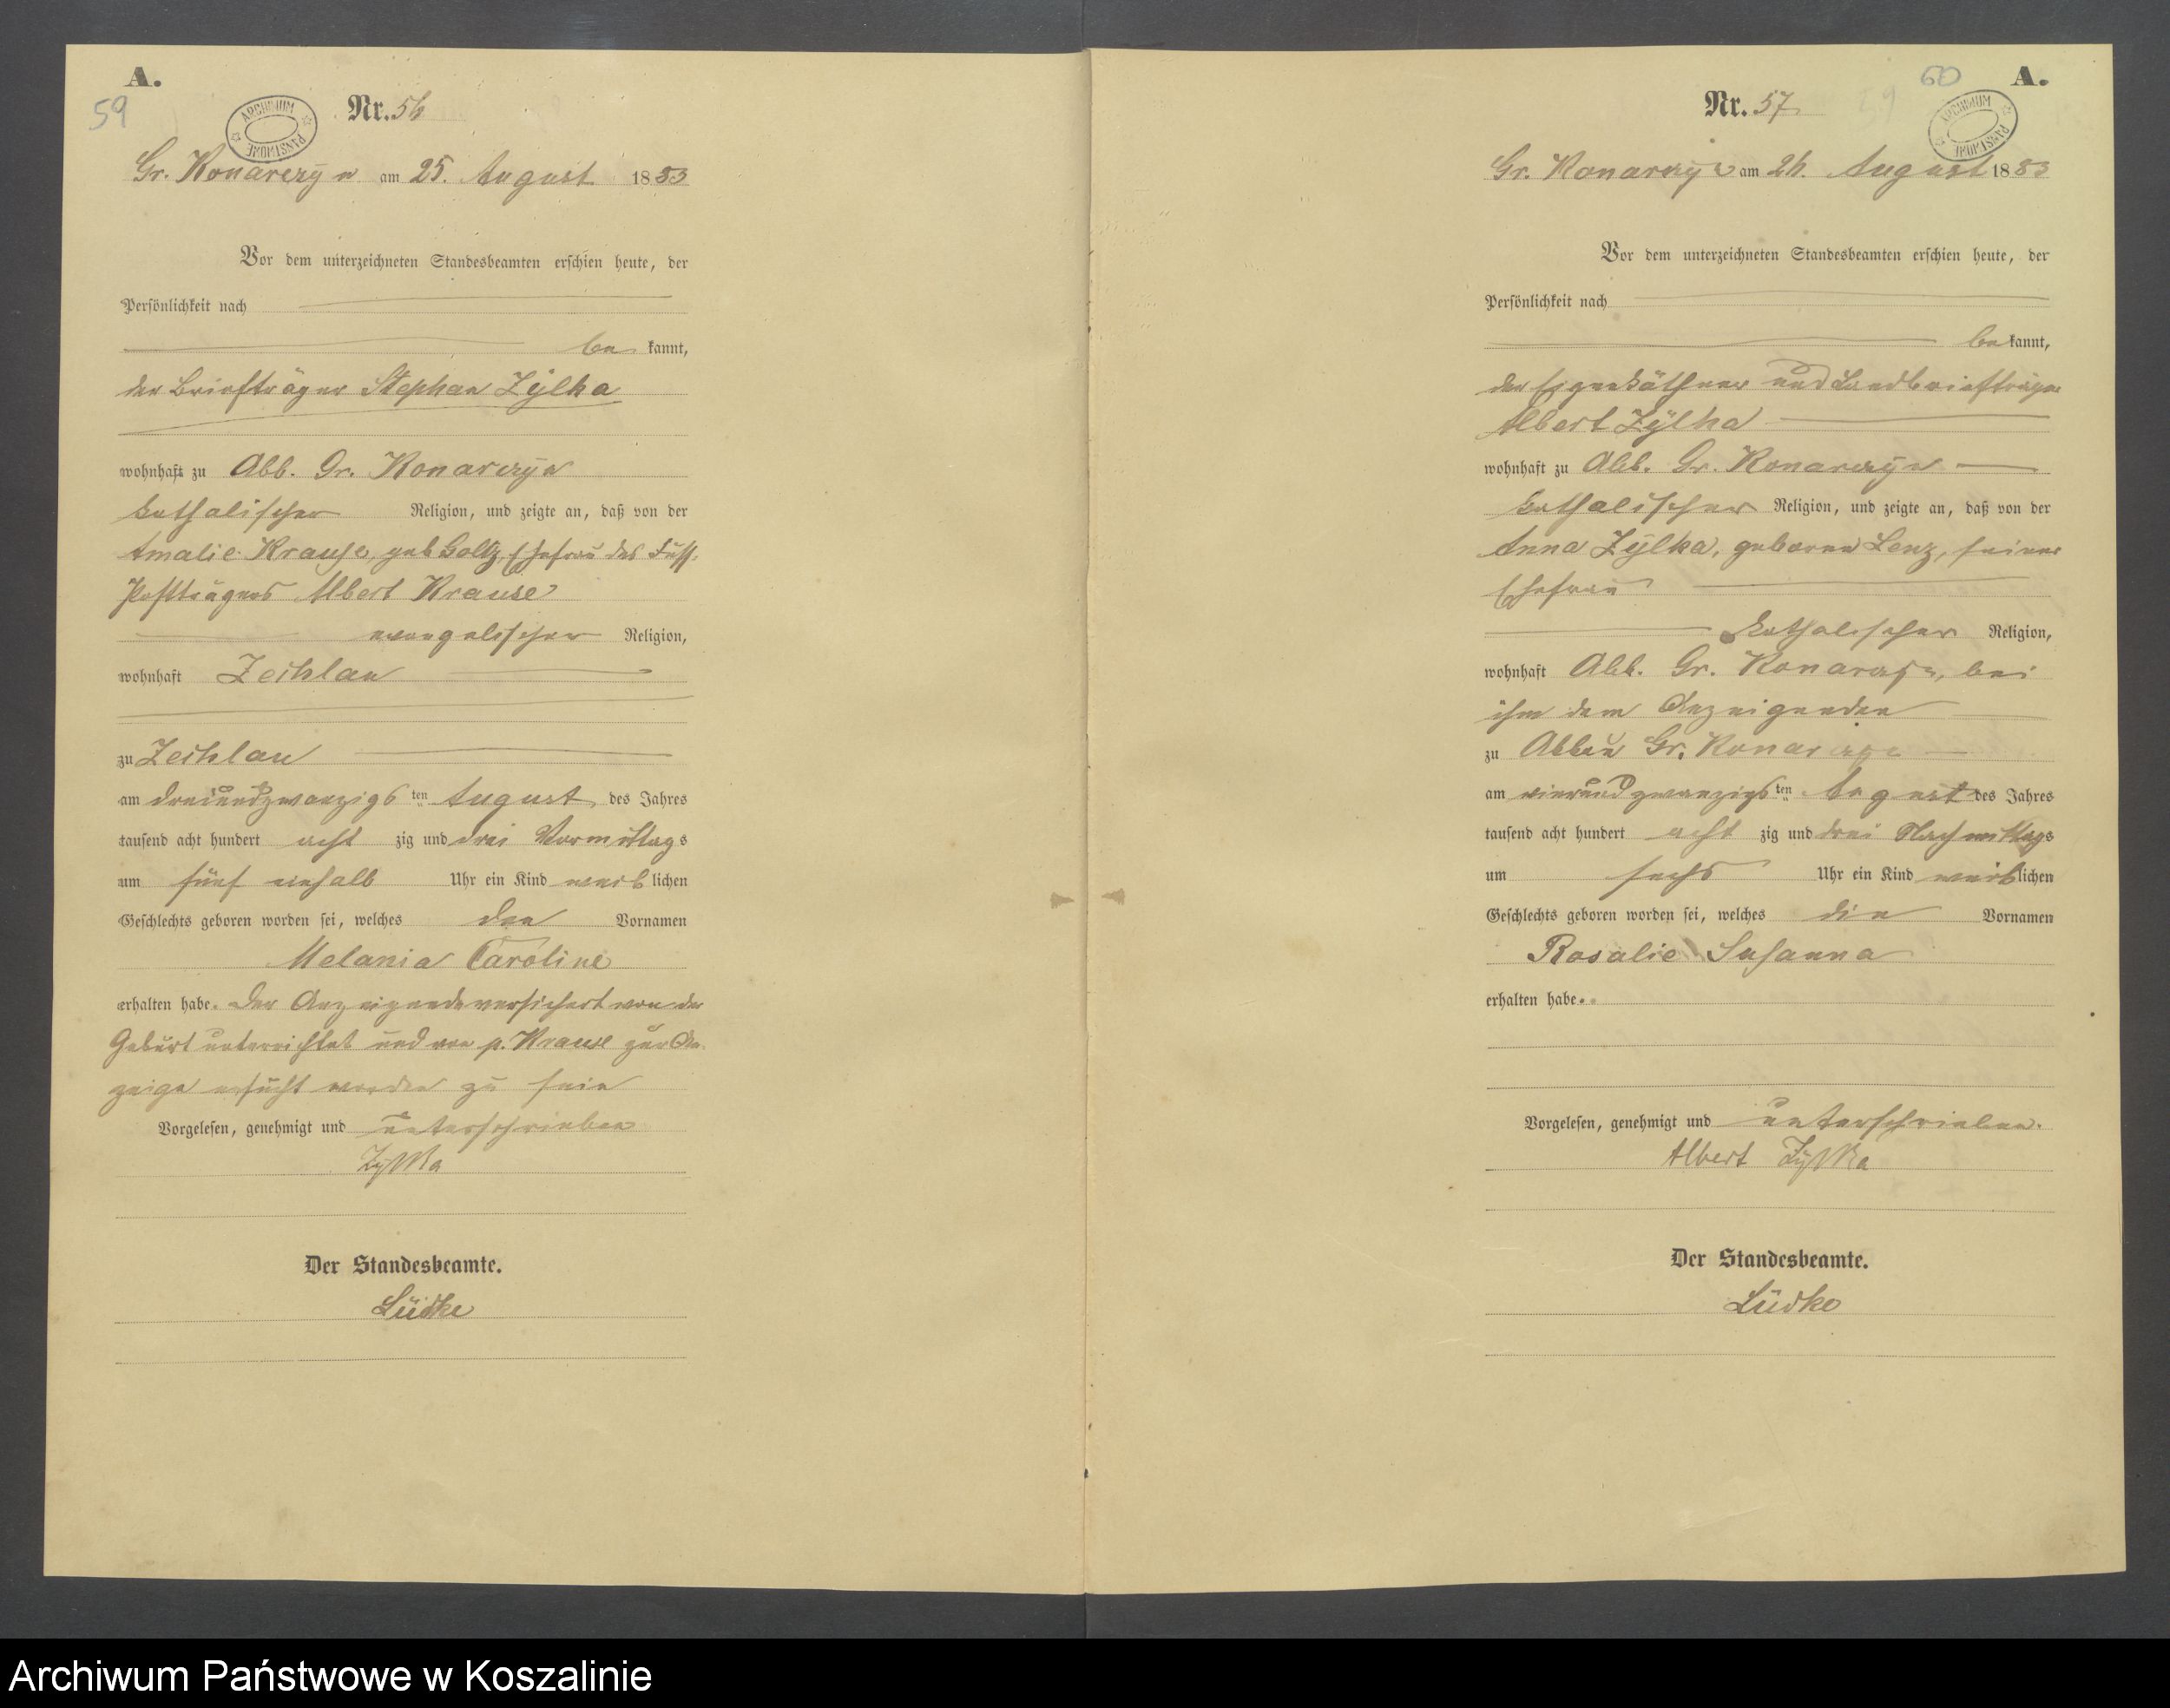 A.
59
ARCHIWUM PAŃSTWOWE
Nr. 56
Gr. Konarczyn am 25. August 1883
Vor dem unterzeichneten Standesbeamten erschien heute, der
Persönlichkeit nach
be kannt,
der Briefträger Stephan Zÿlka
wohnhaft zu Abb. Gr. Konarczyn
katholischer Religion, und zeigte an, daß von der
Amalie Krause, geb Goltz, Ehefrau des
Postträgers Albert Krause
evangelischer Religion,
wohnhaft Zechlau
zu Zechlau
am dreiundzwanzigs ten August des Jahres
tausend acht hundert acht zig und drei Vormittags
um fünf einhalb Uhr ein Kind weib lichen
Geschlechts geboren worden sei, welches den Vornamen
Melania Caroline
erhalten habe. Der Anzeigende versichert von der
Geburt unterrichtet und von p. Krause zur An-
zeige ersucht worden zu sein
Vorgelesen, genehmigt und unterschrieben
Zÿlka
Der Standesbeamte.
Lüdke
60
A.
ARCHIWUM PAŃSTWOWE
Nr. 57
Gr. Konarczyn am 26. August 1883
Vor dem unterzeichneten Standesbeamten erschien heute, der
Persönlichkeit nach
be kannt,
der Eigenkäthner und Landbriefträger
Albert Zÿlka
wohnhaft zu Abb. Gr. Konarczyn
katholischer Religion, und zeigte an, daß von der
Anna Zÿlka, geborene Lenz, seiner
Ehefrau
katholischer Religion,
wohnhaft Abb. Gr. Konarczyn, bei
ihm dem Anzeigenden
zu Abbau Gr. Konarczyn
am vierundzwanzigs ten August des Jahres
tausend acht hundert acht zig und drei Nachmittags
um sechs Uhr ein Kind weib lichen
Geschlechts geboren worden sei, welches die Vornamen
Rosalie Susanna
erhalten habe.
Vorgelesen, genehmigt und unterschrieben.
Albert Zÿlka
Der Standesbeamte.
Lüdke
Archiwum Państwowe w Koszalinie